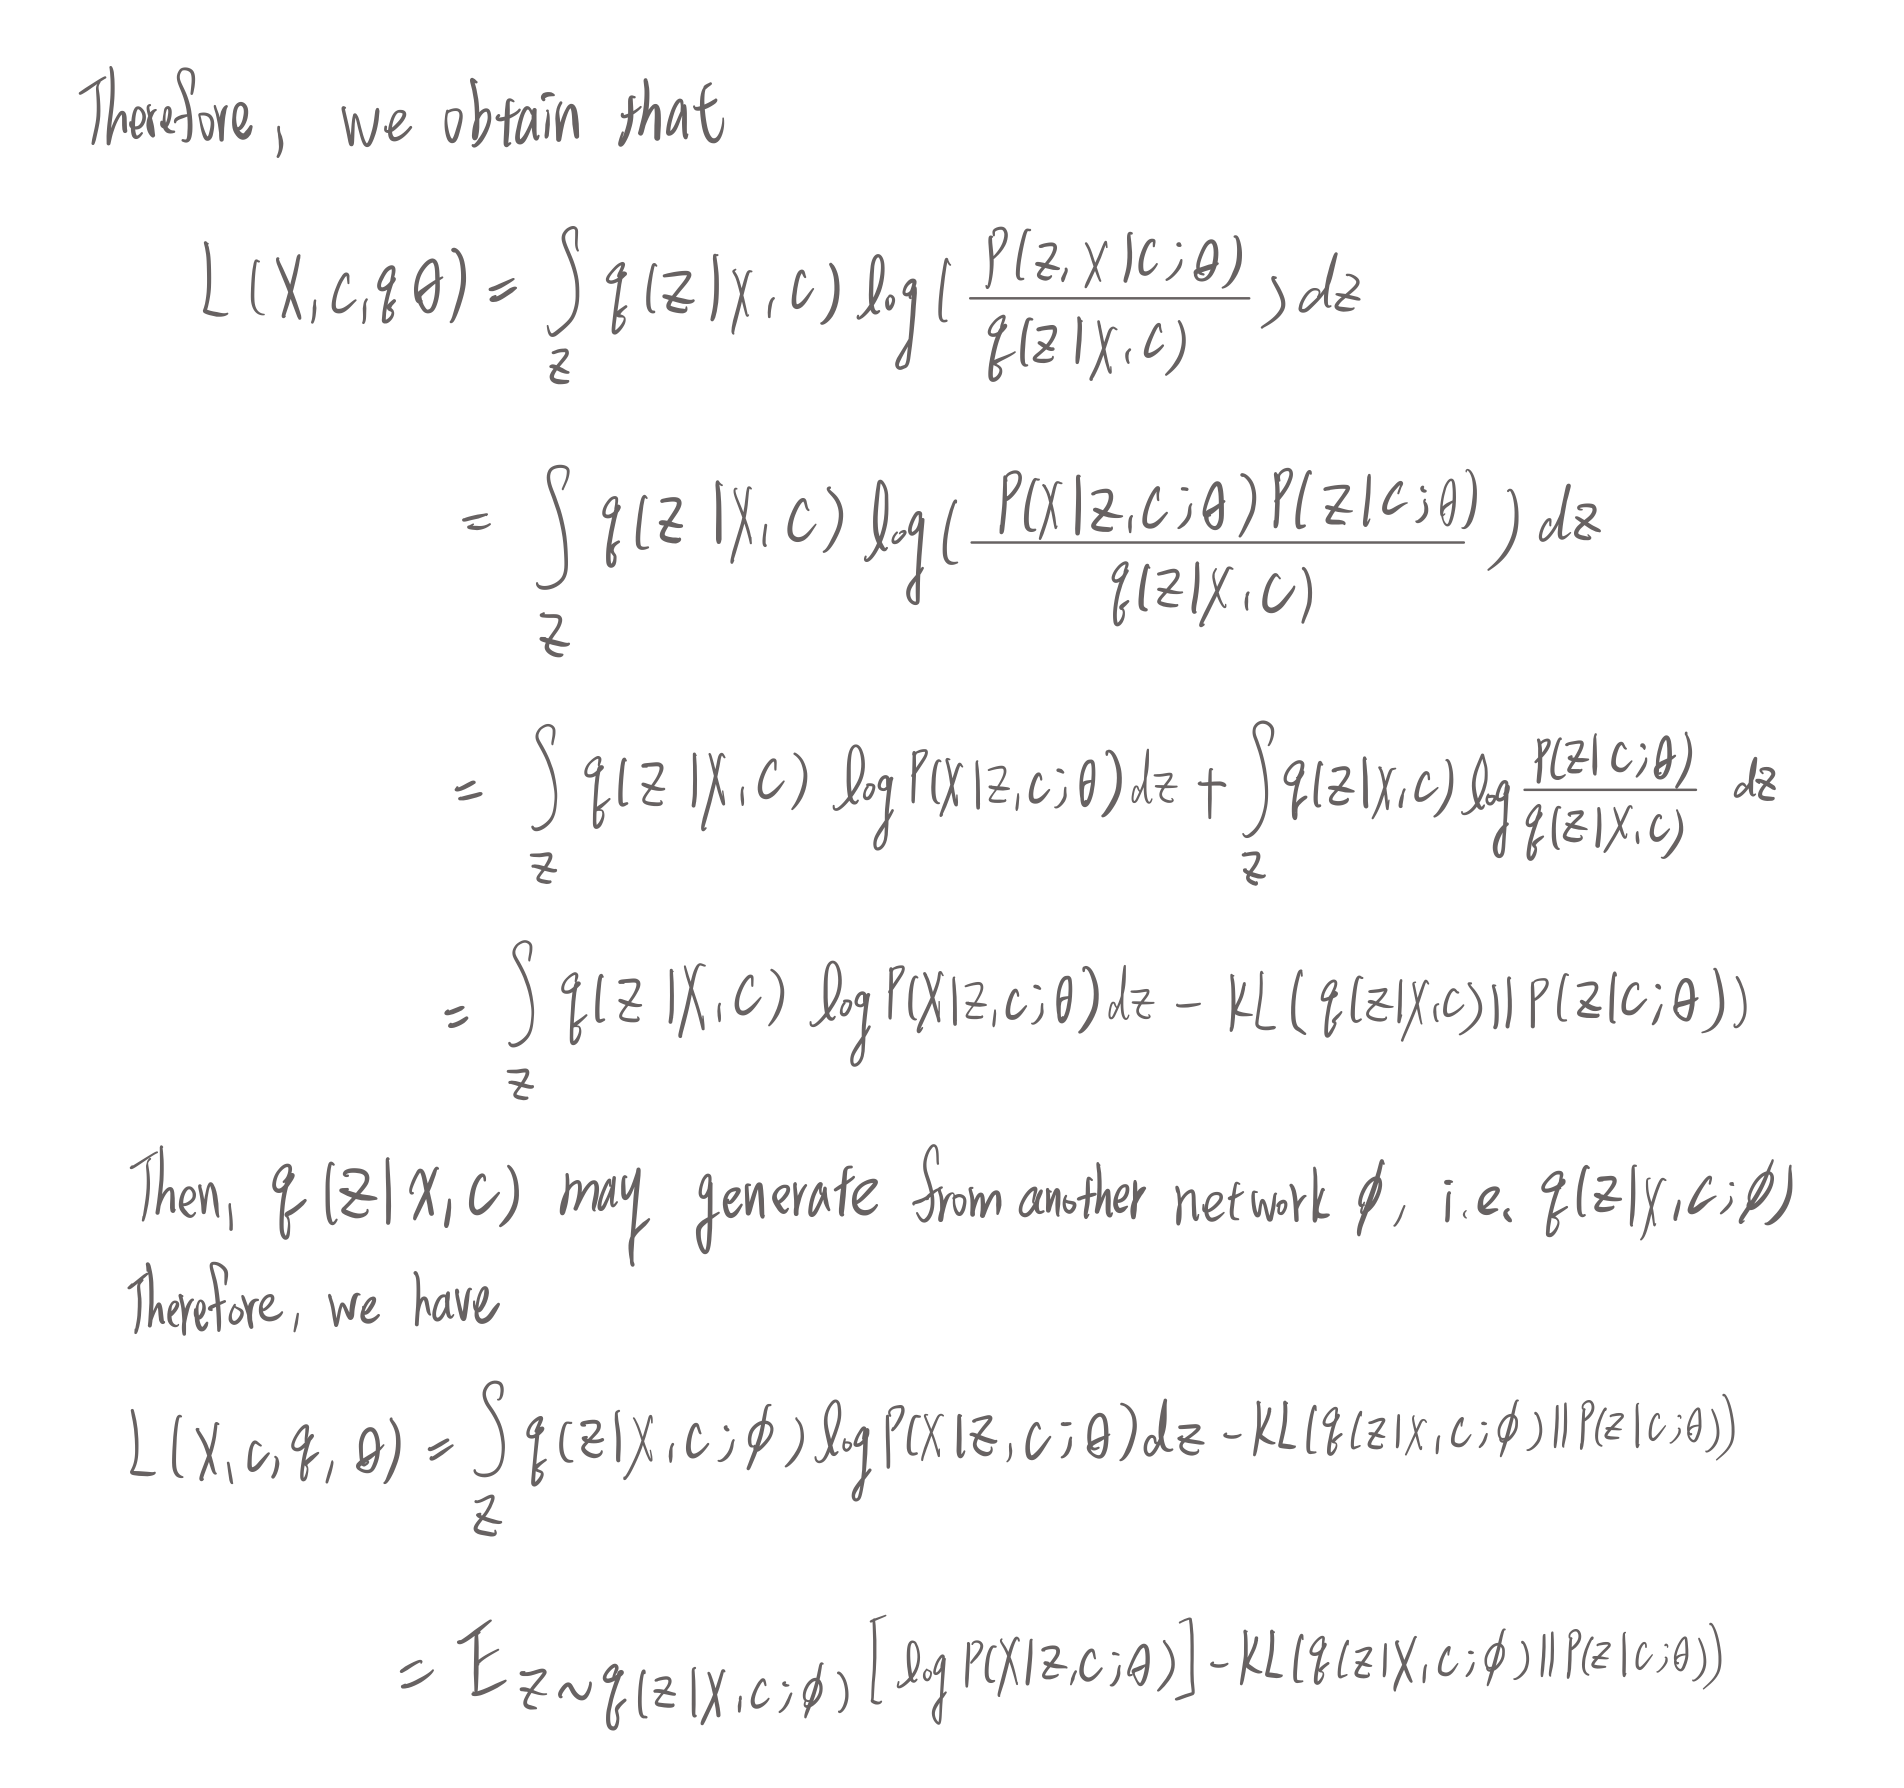 Therefore, we obtain that
L(X, c, q θ) = ∫_z q(z|X, c) log( P(z, X|c; θ) / q(z|X, c) ) dz
= ∫_z q(z|X, c) log( P(X|z, c; θ) P(z|c; θ) / q(z|X, c) ) dz
= ∫_z q(z|X, c) log P(X|z, c; θ) dz + ∫_z q(z|X, c) log P(z|c; θ) / q(z|X, c) dz
= ∫_z q(z|X, c) log P(X|z, c; θ) dz - KL( q(z|X, c) || P(z|c; θ))
Then, q(z|X, c) may generate from another network ϕ, i.e. q(z|X, c; ϕ)
Therefore, we have
L(X, c, q, θ) = ∫_z q(z|X, c; ϕ) log P(X|z, c; θ) dz - KL( q(z|X, c; ϕ) || P(z|c; θ))
= E_{z~q(z|X, c; ϕ)} [log P(X|z, c; θ)] - KL( q(z|X, c; ϕ) || P(z|c; θ))